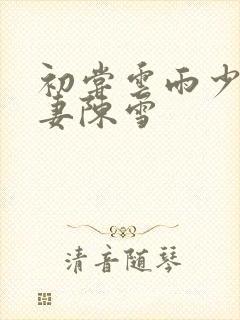 初尝云雨少
妻陈雪
清音随琴